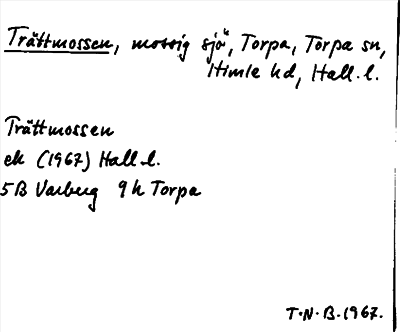 Trättmossen, mossig sjö, Torpa, Torpa sn,
Himle hd, Hall.l.
Trättmossen
ek (1967) Hall.l.
5B Varberg 9h Torpa
T.N.B.1967.